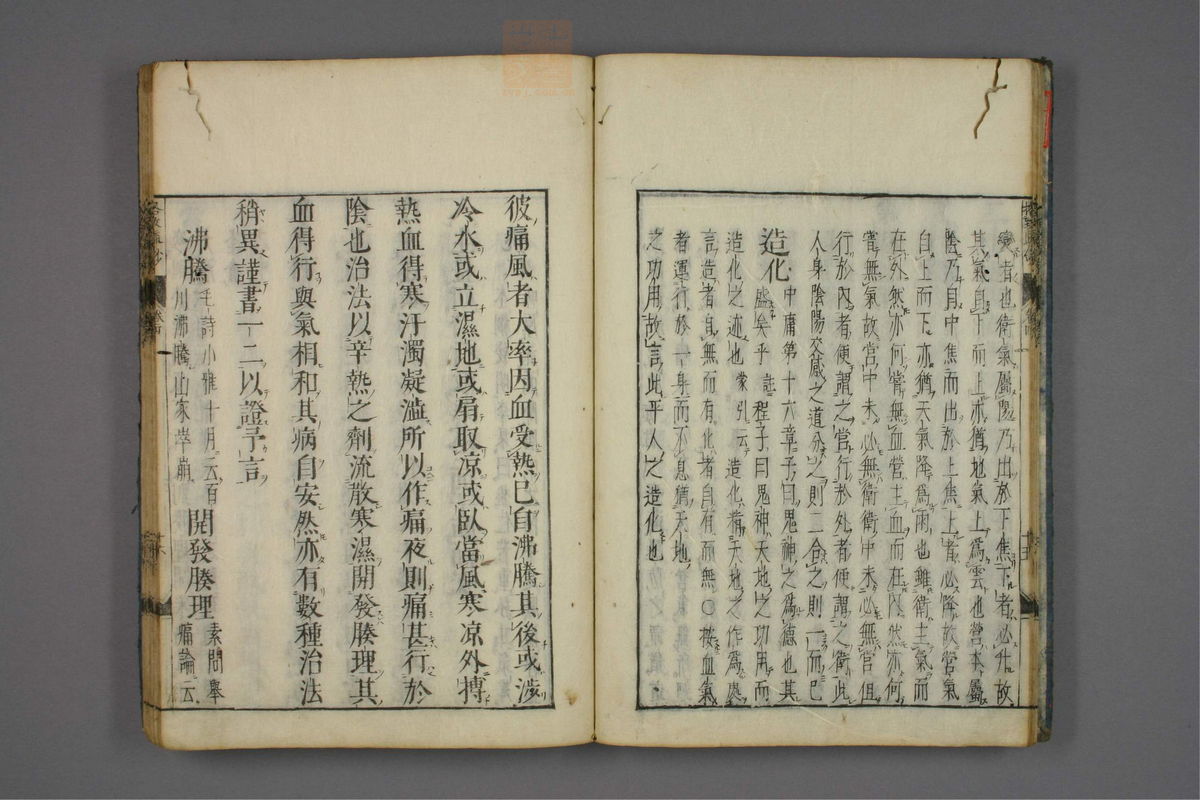 變者也衛氣屬陽乃出於下焦下者必升故
其氣自下而上亦猶地氣上爲雲也營本屬
陰乃自中焦而出於上焦上者必降故營氣
自上而下亦猶天氣降爲雨也雖衛主氣而
在外然亦何嘗無血營主血而在內然亦何
嘗無氣故營中未必無衛衛中未必無營但
行於內者便謂之營行於外者便謂之衛此
人身陰陽交感之道分之則二合之則一而已
造化 中庸第十六章子曰鬼神之爲德也其
盛矣乎 註程子曰鬼神天地之功用而
造化之迹也 蒙引云 造化者天地之作爲處
言造者自無而有化者自有而無○按血氣
者運行於一身而不息猶天地
之功用故言此平人之造化也
彼痛風者大率因血受熱已自沸騰其後或渉
冷水或立濕地或扇取凉或臥當風寒凉外搏
熱血得寒汙濁凝澁所以作痛夜則痛甚行於
陰也治法以辛熱之劑流散寒濕開發腠理其
血得行與氣相和其病自安然亦有數種治法
稍異謹書一二以證予言
沸騰 毛詩小雅十月云百
川沸騰山冢崒崩 開發腠理 素問擧
痛論云